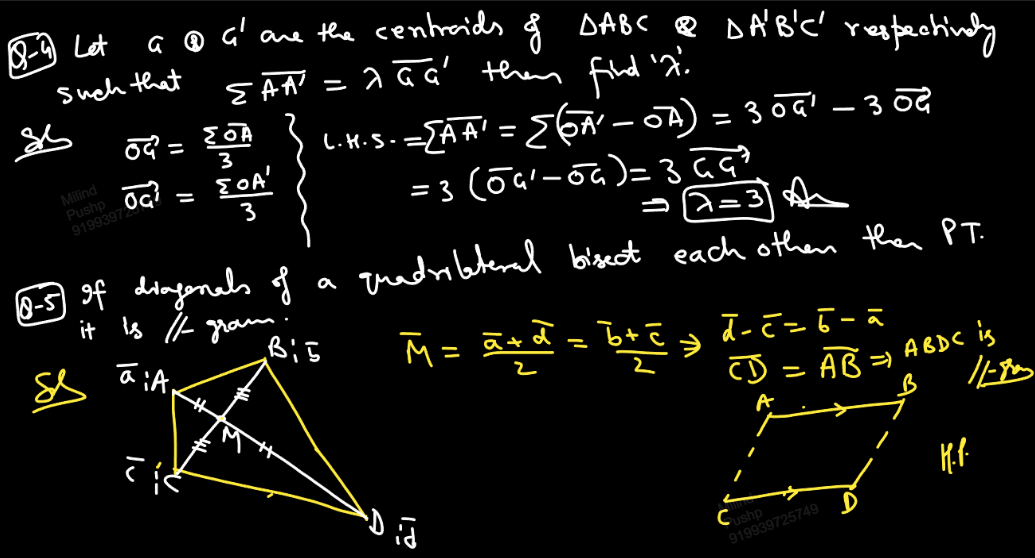 Q-4 Let G & G' are the centroids of ΔABC & ΔA'B'C' respectively
such that Σ AA' = λ GG' then find 'λ'.
Sol
OG = ΣOA / 3
OG' = ΣOA' / 3
L.H.S. = ΣAA' = Σ(OA' – OA) = 3 OG' – 3 OG
= 3 (OG' – OG) = 3 GG'
⇒ λ = 3 Ans
Milind
Pushp
Q-5 If diagonals of a quadrilateral bisect each other then P.T.
it is //-gram.
Sol
M̄ = (ā + d̄)/2 = (b̄ + c̄)/2 ⇒ d̄ – c̄ = b̄ – ā
CD = AB ⇒ ABDC is
//-gram
ā ; A
B ; b̄
M
c̄ ; C
D ; d̄
A
B
C
D
H.P.
Pushp
919939725749